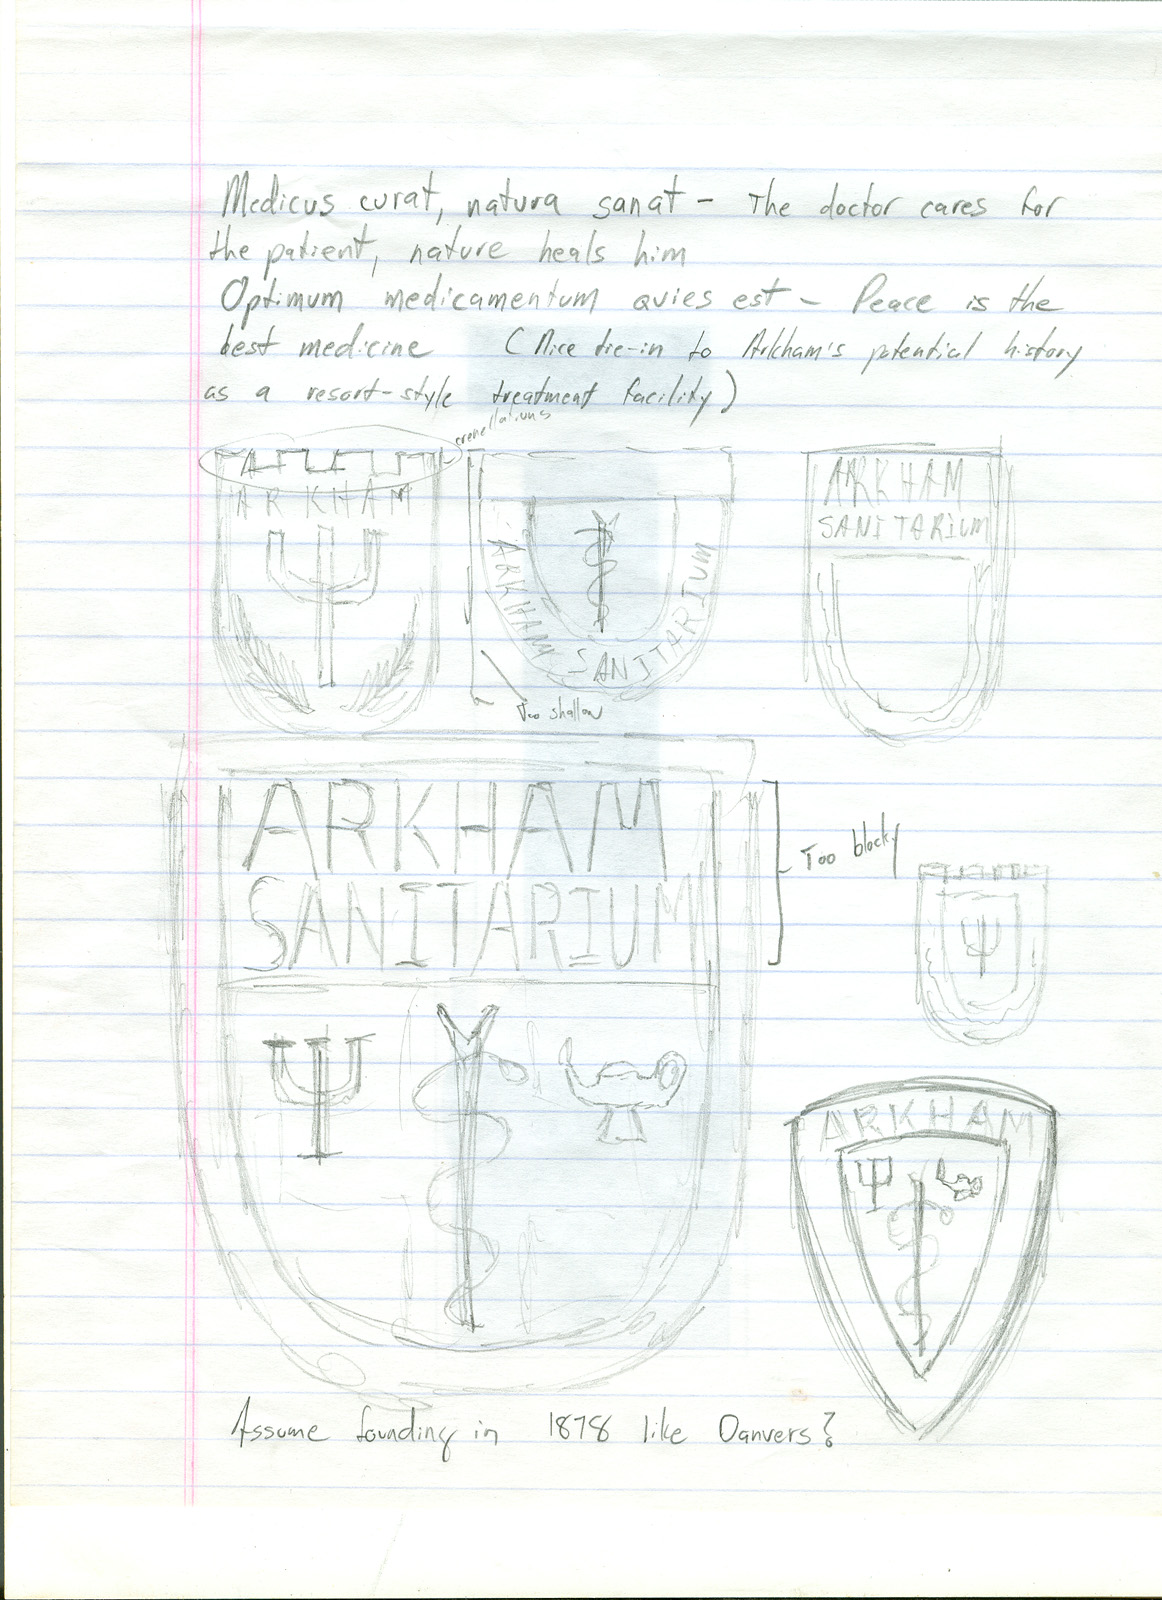 Medicus curat, natura sanat - The doctor cares for
the patient, nature heals him
Optimum medicamentum quies est - Peace is the
best medicine (Nice tie-in to Arkham's potential history
as a resort-style treatment facility)
crenellations
ARKHAM
ARKHAM SANITARIUM
Too shallow
ARKHAM
SANITARIUM
ARKHAM
SANITARIUM
Too blocky
Ψ
Ψ
ARKHAM
Ψ
Assume founding in 1878 like Danvers?